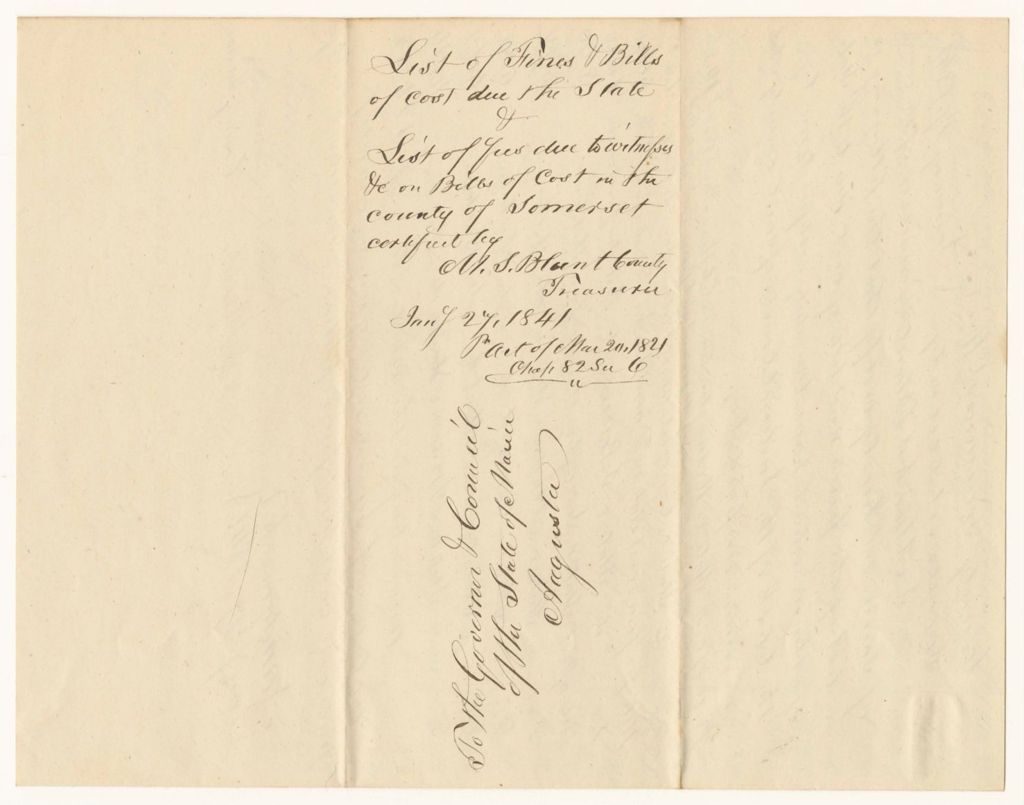 List of Fines & Bills
of cost due the State
&
List of fees due to witnesses
&c on Bills of Cost in the
county of Somerset
certified by
M. S. Blunt County
Treasurer
Jany 27, 1841
Pr Act of Mar 20, 1821
Chap 82 Sec 6
To the Governor & Council
of the State of Maine
Augusta